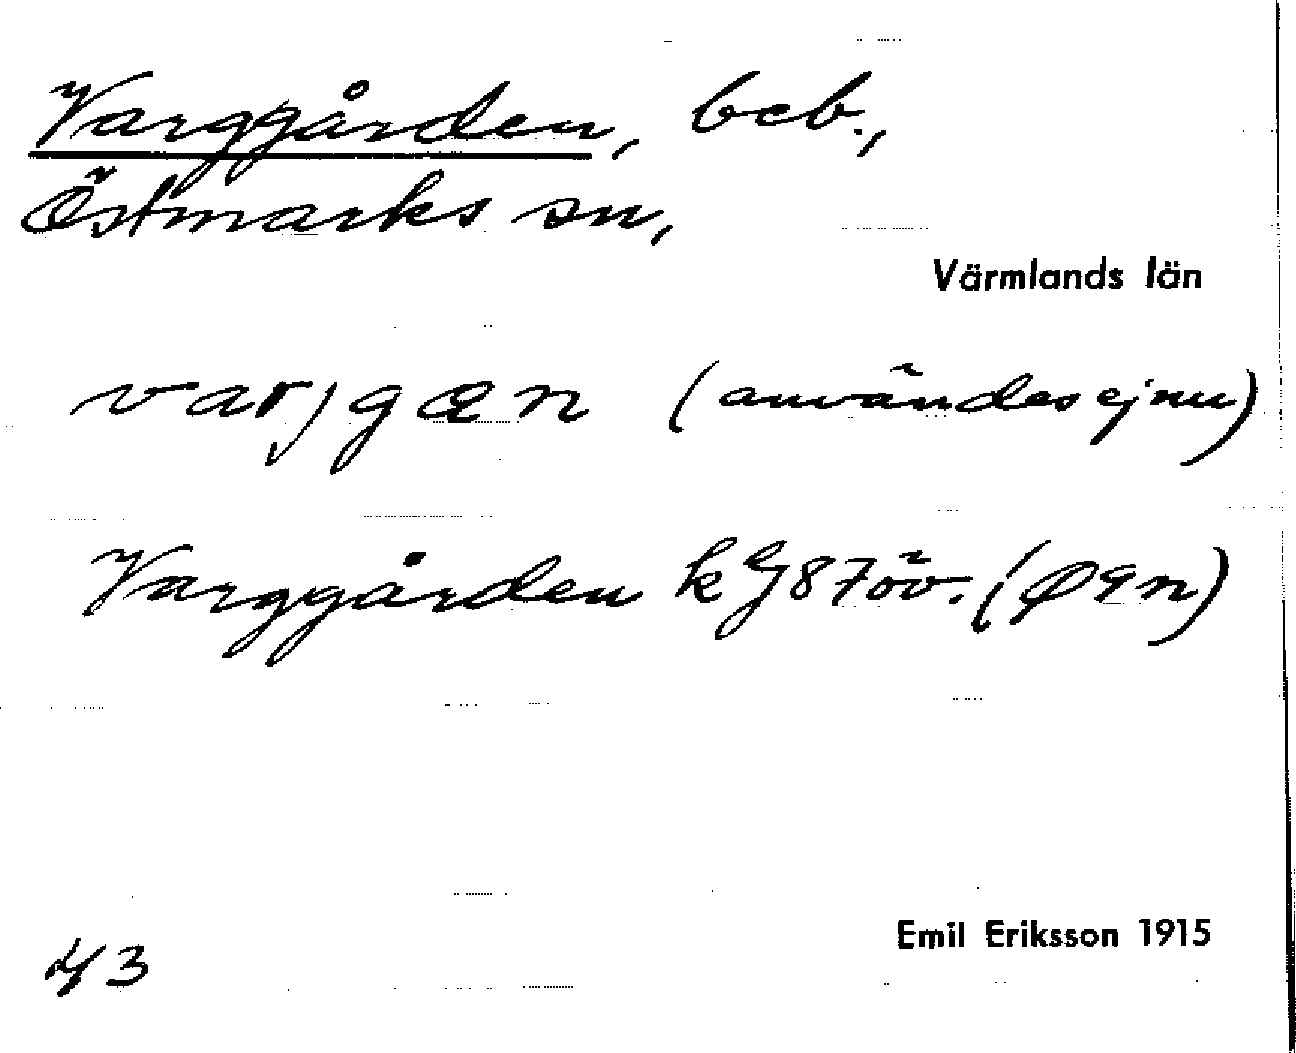 Varggården, beb.,
Östmarks sn,
Värmlands län
(användes ej nu)
Varggården k G87öv. (Ø9n)
Emil Eriksson 1915
43